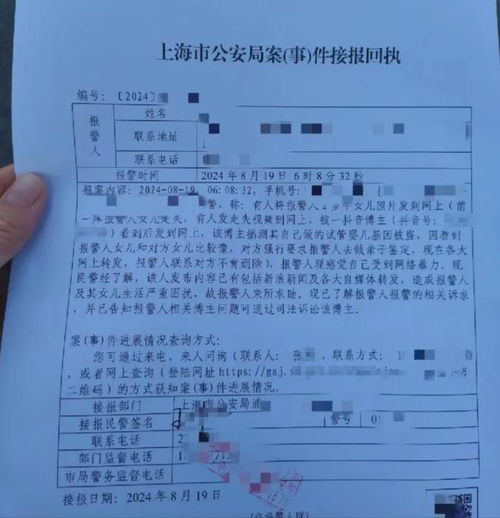 上海市公安局案(事)件接报回执
编号: 〔2024〕
报警人
姓名
联系地址
联系电话
报警时间 2024 年 8 月 19 日 6 时 8 分 32 秒
报案内容: 2024-08-19 06:08:32, 手机号:
警, 称: 有人将报警人2岁半女儿照片发到网上(前
一阵报警人女儿走失, 有人发走失视频到网上, 被一抖音博主(抖音号:
)看到后发到网上, 该博主猜测其自己做的试管婴儿基因被盗, 因看到
报警人女儿和对方女儿比较像, 对方强行要求报警人去做亲子鉴定, 现在各大
网上转发, 报警人联系对方不肯删除), 报警人现感觉自己受到网络暴力。现
民警经了解, 该人发布内容已有包括新浪新闻及各大自媒体转发, 造成报警人
及其女儿生活严重困扰, 故报警人来所求助。现已了解报警人报警的相关诉求
, 并已告知报警人相关博主问题可通过司法诉讼该博主。
案(事)件进展情况查询方式:
您可通过来电、来人问询(联系人: 张 , 联系方式: 1
, 或者网上查询(登陆网址 https://gaj.
二维码)的方式获知案(事)件进展情况。
接报部门 上海市公安局浦
接报民警签名 警号 0
联系电话 2
部门监督电话 1
市局警务监督电话
接报日期: 2024 年 8 月 19 日